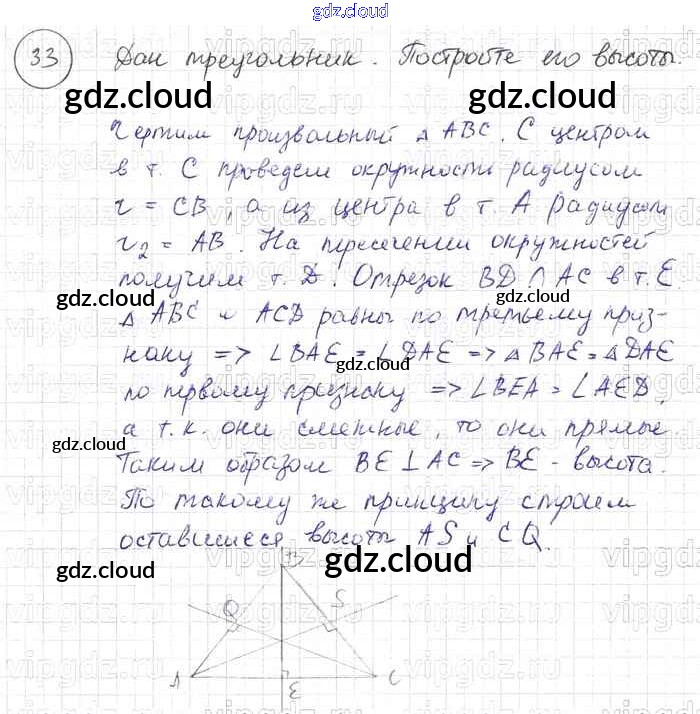 gdz.cloud
33 Дан треугольник. Постройте его высоты.
gdz.cloud gdz.cloud
Чертим произвольный △ ABC. С центром
в т. С проведем окружности радиусом
r = CB, а из центра в т. А радиусом
r₂ = AB. На пересечении окружностей
получим т. D. Отрезок BD ∩ AC в т. E.
gdz.cloud gdz.cloud
△ ABC и ACD равны по третьему приз-
наку => ∠BAE = ∠DAE => △ BAE = △ DAE
gdz.cloud gdz.cloud
по первому признаку => ∠BEA = ∠AED,
а т.к. они смежные, то они прямые.
gdz.cloud
Таким образом BE ⊥ AC => BE - высота.
По такому же принципу строим
оставшиеся высоты AS и CQ.
gdz.cloud gdz.cloud
B
Q S
A E C